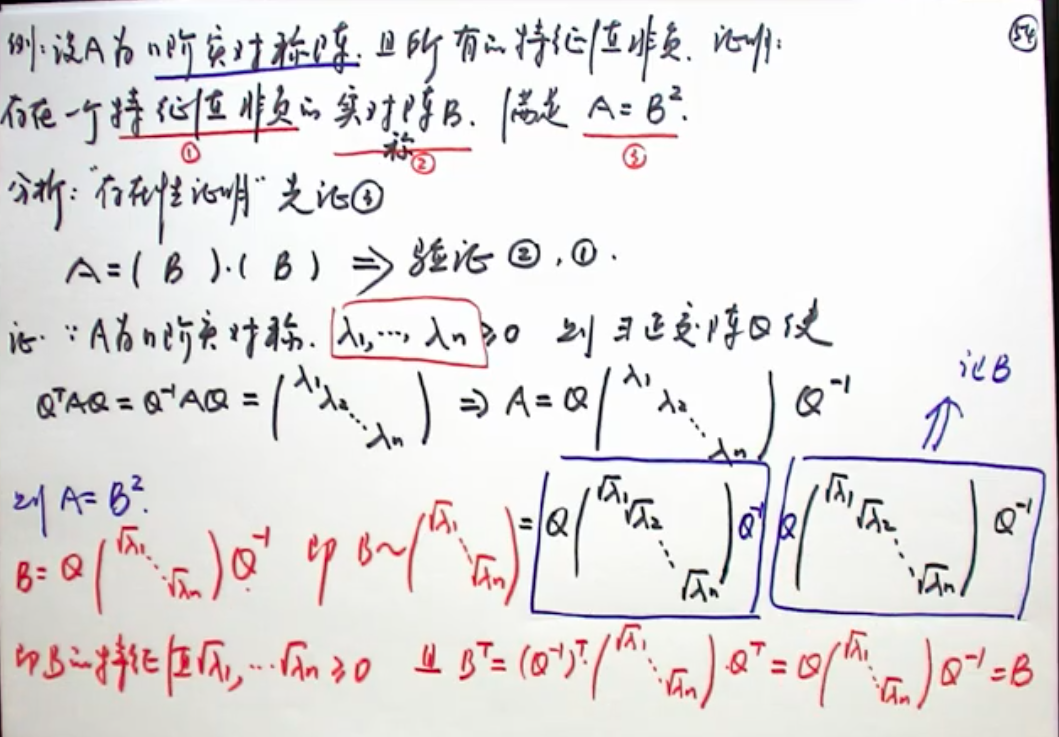 例:设A为n阶实对称阵.且所有的特征值非负.证明: 54
存在一个特征值非负的实对称阵B.满足 A=B².
① ② ③
分析:"存在性证明"先证③
A=( B )·( B ) ⇒ 验证②,①.
证:∵A为n阶实对称.λ₁,…,λn≥0 则∃正交阵Q使
记B
QᵀAQ=Q⁻¹AQ=(λ₁ λ₂ ⋱ λn) ⇒ A=Q(λ₁ λ₂ ⋱ λn)Q⁻¹
=Q(√λ₁ √λ₂ ⋱ √λn)Q⁻¹ Q(√λ₁ √λ₂ ⋱ √λn)Q⁻¹
则A=B².
B=Q(√λ₁ ⋱ √λn)Q⁻¹. 即 B~(√λ₁ ⋱ √λn)
即B的特征值√λ₁,…√λn≥0 且 Bᵀ=(Q⁻¹)ᵀ·(√λ₁ ⋱ √λn)·Qᵀ=Q(√λ₁ ⋱ √λn)Q⁻¹=B